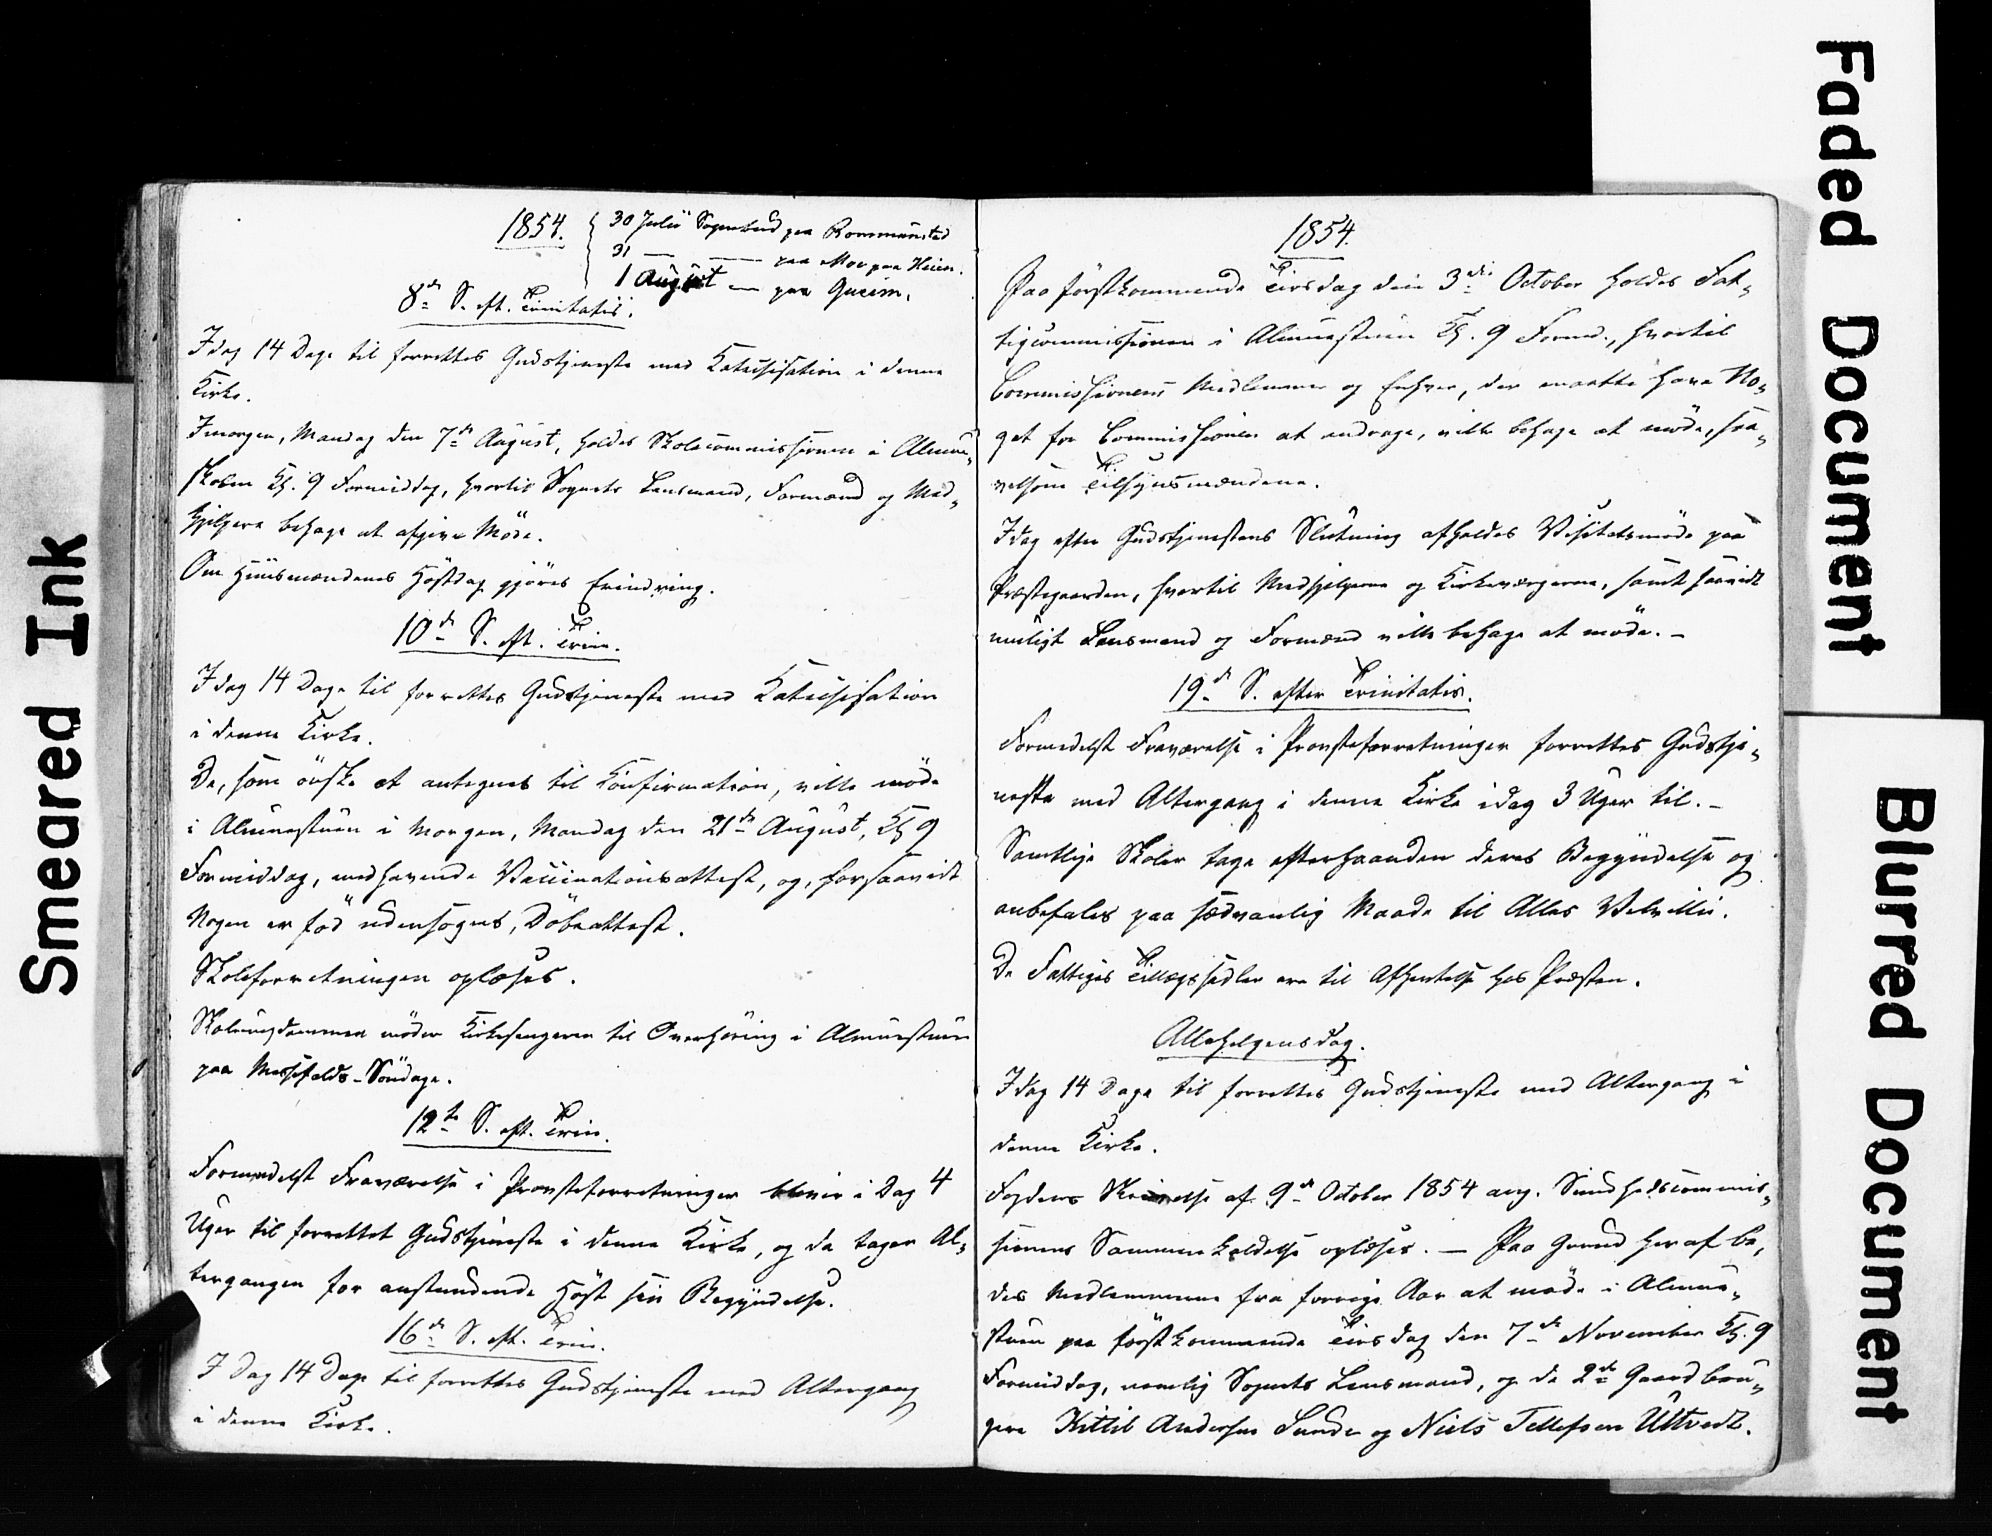 1854.
30 Julii Sognebud paa Rommunstad
31 — — paa Moe paa Heien.
1 August — paa Gueim.
8de S. eft. Trinitatis.
Idag 14 Dage til forrettes Gudstjeneste med Katechisation i denne
Kirke.
Imorgen, Mandag den 7de August, holdes Skolecommissionen i Almue-
skolen Kl. 9 Formiddag, hvortil Sognets Lensmand, Formænd og Med-
hjelpere behage at afgive Møde.
Om Huusmændenes Høstdag gjøres Erindring.
10de S. eft. Trin.
Idag 14 Dage til forrettes Gudstjeneste med Katechisation
i denne Kirke.
De, som ønske at antegnes til Confirmation, ville møde
i Almuestuen i Morgen, Mandag den 21de August, Kl 9
Formiddag, medhavende Vaccinationsattest, og, forsaavidt
Nogen er fød udensogns, Døbeattest.
Skoleforretningen oplæses.
Skoleungdommen møder Kirkesangeren til Overhøring i Almuestuen
paa Messefalds-Søndage.
12te S. eft. Trin.
Formedelst Fraværelse i Provsteforretninger bliver i Dag 4
Uger til forrettet Gudstjeneste i denne Kirke, og da tager Al-
tergangen for anstundende Høst sin Begyndelse.
16de S. eft. Trin.
I Dag 14 Dage til forrettes Gudstjeneste med Altergang
i denne Kirke.
1854.
Paa førstkommende Tirsdag den 3die October holdes Fat-
tigcommissionen i Almuestuen Kl. 9 Formd., hvortil
Commissionens Medlemmer og Enhver, der maatte have No-
get for Commissionen at andrage, ville behage at møde, saa-
velsom Tilsynsmændene.
Idag efter Gudstjenestens Slutning afholdes Visitatsmøde paa
Præstegaarden, hvortil Medhjelperne og Kirkeværgerne, samt saavidt
muligt Lensmand og Formænd ville behage at møde. –
19de S. efter Trinitatis.
Formedelst Fraværelse i Provsteforretninger forrettes Gudstje-
neste med Altergang i denne Kirke idag 3 Uger til. –
Samtlige Skoler tage efterhaanden deres Begyndelse og
anbefales paa sædvanlig Maade til Alles Velvillie.
De Fattiges Tillægssedler ere til Afhentelse hos Præsten.
Allehelgensdag.
Idag 14 Dage til forrettes Gudstjeneste med Altergang i
denne Kirke.
Fogdens Skrivelse af 9de October 1854 ang. Sundhedscommis-
sionens Sammenkaldelse oplæses. — Paa Grund heraf be-
des Medlemmerne fra forrige Aar at møde i Almue-
stuen paa førstkommende Tirsdag den 7de November Kl. 9
Formiddag, nemlig Sognets Lensmand, og de 2de Gaardbru-
gere Kittil Andersen Sunde og Niels Tellefsen Ustvedt.
Smeared Ink
Faded Document
Blurred Document